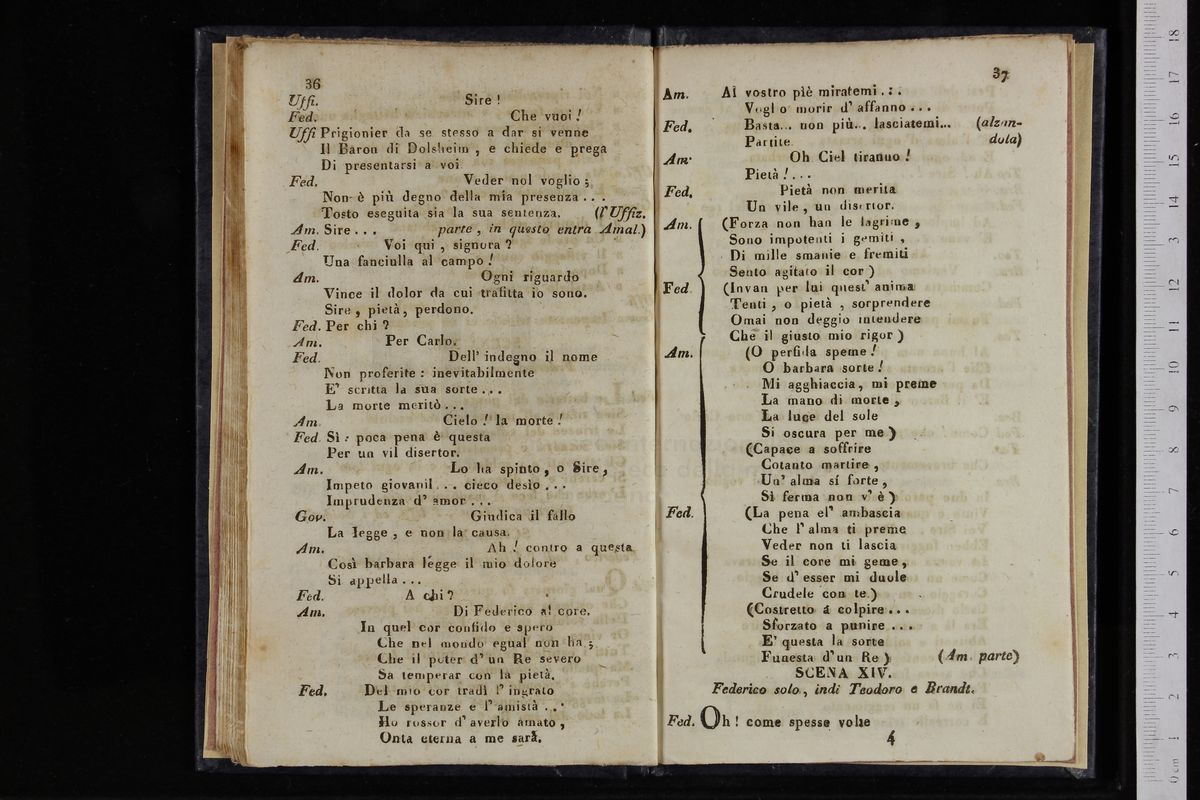 36
Uffi. Sire !
Fed. Che vuoi !
Uffi Prigionier da se stesso a dar si venne
Il Baron di Dolsheim , e chiede e prega
Di presentarsi a voi
Fed. Veder nol voglio ;
Non è più degno della mia presenza . . .
Tosto eseguita sia la sua sentenza. (l' Uffiz.
Am. Sire . . . parte , in questo entra Amal.)
Fed. Voi qui , signora ?
Una fanciulla al campo !
Am. Ogni riguardo
Vince il dolor da cui trafitta io sono.
Sire , pietà , perdono.
Fed. Per chi ?
Am. Per Carlo.
Fed. Dell' indegno il nome
Non proferite : inevitabilmente
E' scritta la sua sorte . . .
La morte meritò . . .
Am Cielo ! la morte !
Fed Sì : poca pena è questa
Per un vil disertor.
Am. Lo ha spinto , o Sire ,
Impeto giovanil . . . cieco desìo . . .
Imprudenza d' amor . . .
Gov. Giudica il fallo
La legge , e non la causa.
Am. Ah ! contro a questa
Così barbara legge il mio dolore
Si appella . . .
Fed. A chi ?
Am. Di Federico al core.
In quel cor confido e spero
Che nel mondo egual non ha ;
Che il poter d' un Re severo
Sa temperar con la pietà.
Fed. Del mio cor tradì l' ingrato
Le speranze e l' amistà . . .
Ho rossor d' averlo amato ,
Onta eterna a me sarà.
37
Am. Al vostro piè miratemi . : .
Vogl o morir d' affanno . . .
Fed. Basta... non più... lasciatemi... (alzan-
Partite dola)
Am. Oh Ciel tiranno !
Pietà ! . . .
Fed. Pietà non merita
Un vile , un disertor.
Am. (Forza non han le lagrime ,
Sono impotenti i gemiti ,
Di mille smanie e fremiti
Sento agitato il cor )
Fed (Invan per lui quest' anima
Tenti , o pietà , sorprendere
Omai non deggio intendere
Che il giusto mio rigor )
Am. (O perfida speme !
O barbara sorte !
Mi agghiaccia, mi preme
La mano di morte ,
La luce del sole
Si oscura per me )
(Capace a soffrire
Cotanto martire ,
Un' alma sí forte ,
Sì ferma non v' è )
Fed. (La pena el' ambascia
Che l' alma ti preme
Veder non ti lascia
Se il core mi geme ,
Se d' esser mi duole
Crudele con te )
(Costretto á colpire . . .
Sforzato a punire . . .
E' questa la sorte
Funesta d'un Re ) (Am parte)
SCENA XIV.
Federico solo , indi Teodoro e Brandt.
Fed. Oh ! come spesse volte
4
0 cm 1 2 3 4 5 6 7 8 9 10 11 12 13 14 15 16 17 18